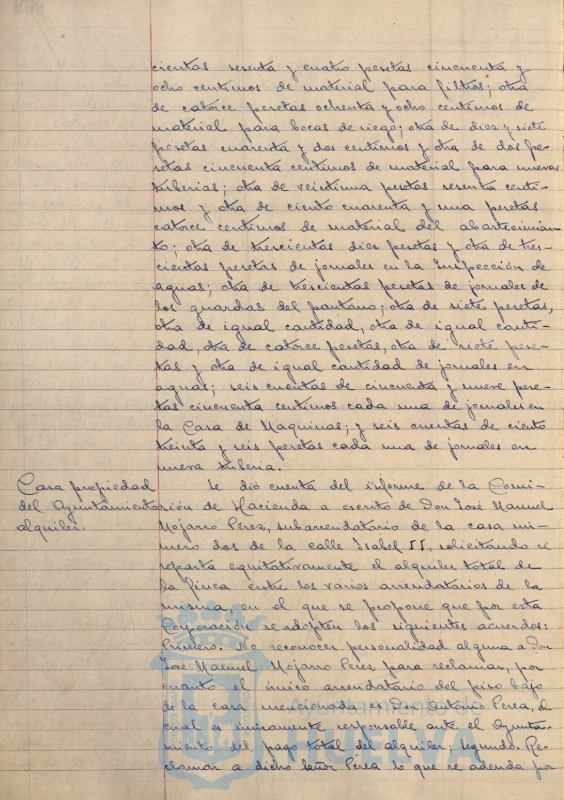 cientas sesenta y cuatro pesetas cincuenta y
ocho centimos de material para filtros; otra
de catorce pesetas ochenta y ocho centimos de
material para bocas de riego; otra de diez y siete
pesetas cuarenta y dos centimos y otra de dos pe-
setas cincuenta centimos de material para nueva
tuberias; otra de veintiuna pesetas sesenta centi-
mos y otra de ciento cuarenta y una pesetas
catorce centimos de material del abastecimien-
to; otra de trescientas diez pesetas y otra de tres-
cientas pesetas de jornales en la Inspección de
aguas; otra de trescientas pesetas de jornales de
los guardas del pantano; otra de siete pesetas,
otra de igual cantidad, otra de igual canti-
dad, otra de catorce pesetas, otra de siete pese-
tas y otra de igual cantidad de jornales en
aguas; seis cuentas de cincuenta y nueve pese-
tas cincuenta centimos cada una de jornales en
la Casa de Maquinas; y seis cuentas de ciento
treinta y seis pesetas cada una de jornales en
nueva tuberia.
Casa propiedad
del Ayuntamiento
alquiler.
Se dió cuenta del informe de la Comi-
sión de Hacienda a escrito de Don José Manuel
Mojarro Perez, subarrendatario de la casa nú-
mero dos de la calle Isabel II, solicitando se
reparta equitativamente el alquiler total de
la finca entre los varios arrendatarios de la
misma, en el que se propone que por esta
Corporación se adopten los siguientes acuerdos:
Primero. No reconocer personalidad alguna a Don
José Manuel Mojarro Perez para reclamar, por
cuanto el único arrendatario del piso bajo
de la casa mencionada es Don Antonio Perea, el
cual es únicamente responsable ante el Ayunta-
miento del pago total del alquiler; segundo. Re-
clamar a dicho Señor Perea lo que se adeuda por
Ayuntamiento
HUELVA